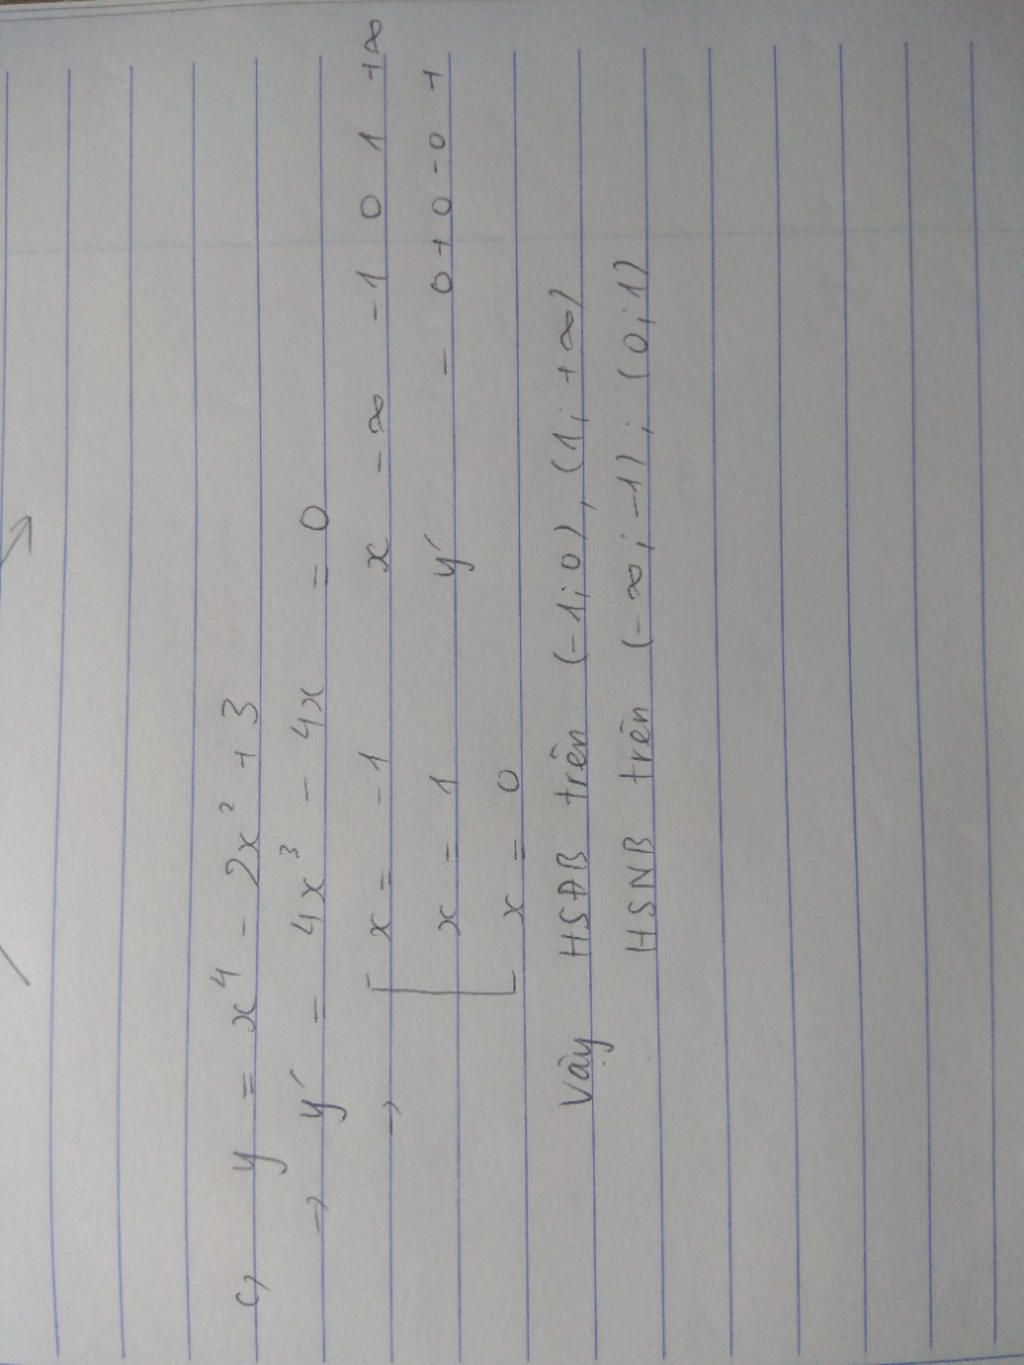 c, y = x⁴ - 2x² + 3
→ y' = 4x³ - 4x = 0
→ [ x = -1 x -∞ -1 0 1 +∞
x = 1 y' - 0 + 0 - 0 +
x = 0
Vậy HSĐB trên (-1; 0), (1; +∞)
HSNB trên (-∞; -1); (0; 1)